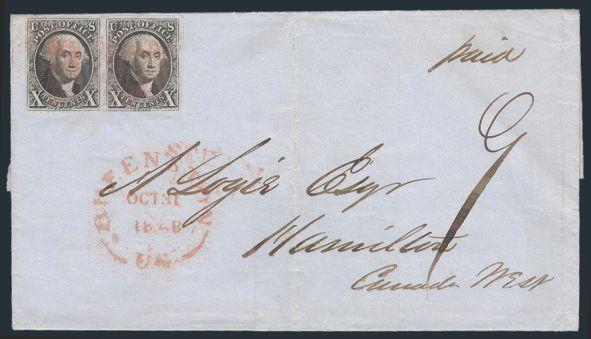 U S
POST OFFICE
X TEN CENTS X
U S
POST OFFICE
X TEN CENTS X
paid
9
OCT 31
1848
A Logie Esqr
Hamilton
Canada West